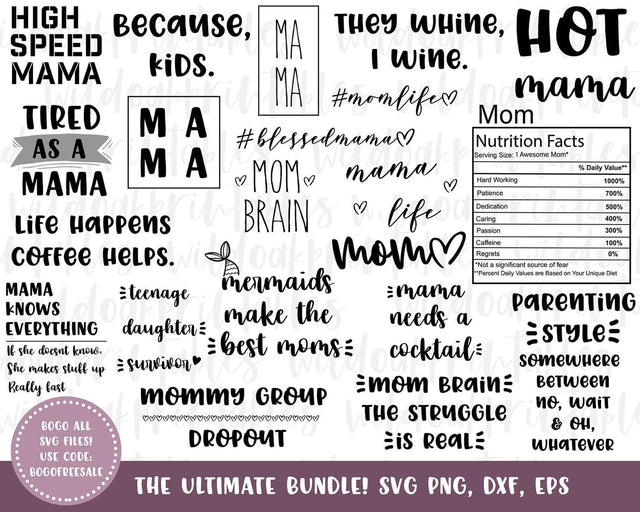 HIGH
SPEED
MAMA
because,
kids.
MA
MA
THEY WHINE,
I WINE.
HOT
mama
#momlife
TIRED
AS A
MAMA
M A
M A
#blessedmama
MOM
BRAIN
mama
life
Mom
Nutrition Facts
Serving Size: 1 Awesome Mom*
% Daily Value**
Hard Working 1000%
Patience 700%
Dedication 500%
Caring 400%
Passion 300%
Caffeine 100%
Regrets 0%
*Not a significant source of fear
**Percent Daily Values are Based on Your Unique Diet
Life happens
coffee helps.
mom
MAMA
KNOWS
EVERYTHING
If she doesnt know,
She makes stuff up
Really fast
teenage
daughter
survivor
mermaids
make the
best moms
mama
needs a
cocktail
PARENTING
STYLE
SOMEWHERE
BETWEEN
NO, WAIT
& OH,
WHATEVER
mommy group
DROPOUT
mom brain
THE STRUGGLE
is real
BOGO ALL
SVG FILES!
USE CODE:
BOGOFREESALE
THE ULTIMATE BUNDLE! SVG PNG, DXF, EPS
wildoakprintables